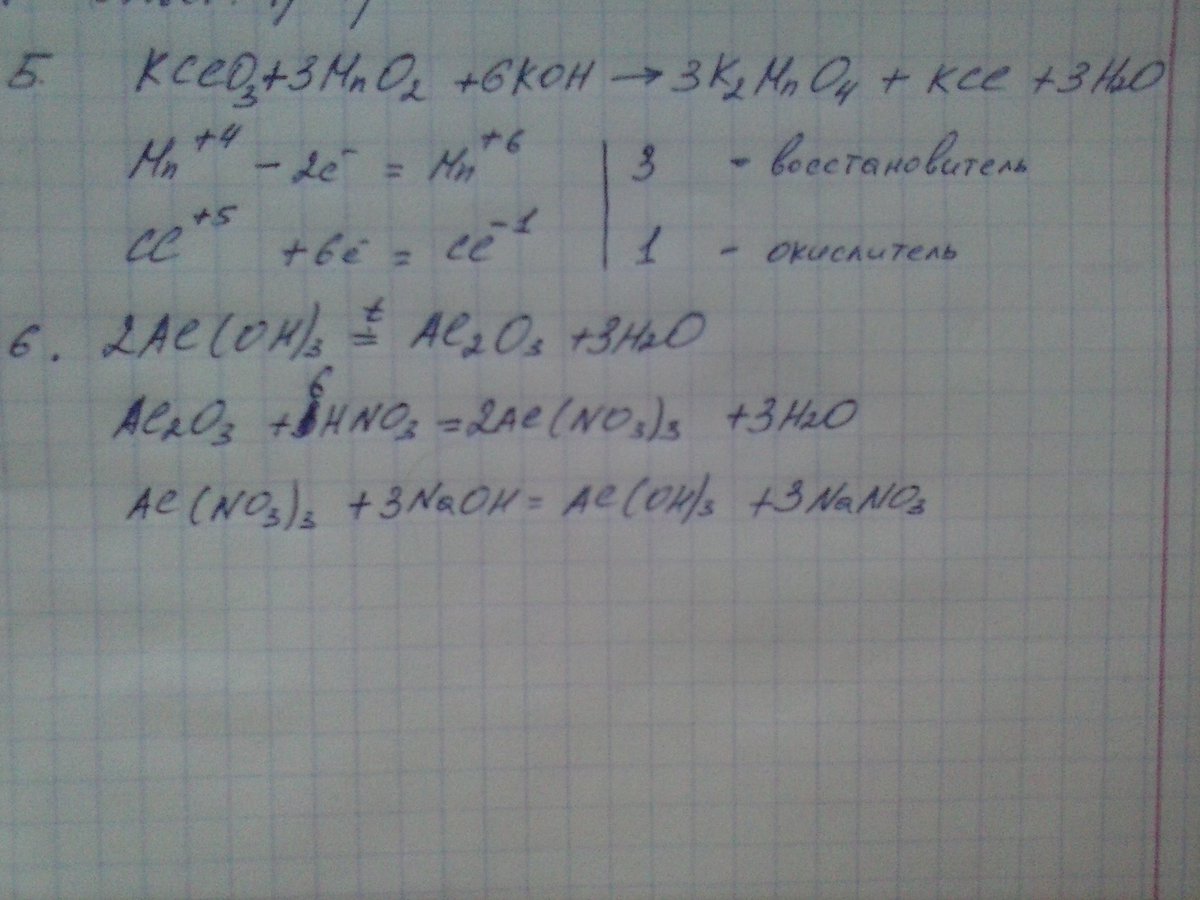 5. KClO₃+3MnO₂ +6KOH → 3K₂MnO₄ + KCl +3H₂O
Mn⁺⁴ - 2e⁻ = Mn⁺⁶ | 3 - восстановитель
Cl⁺⁵ +6e⁻ = Cl⁻¹ | 1 - окислитель
6. 2Al(OH)₃ =ᵗ Al₂O₃ +3H₂O
Al₂O₃ +6HNO₃ =2Al(NO₃)₃ +3H₂O
Al(NO₃)₃ +3NaOH= Al(OH)₃ +3NaNO₃